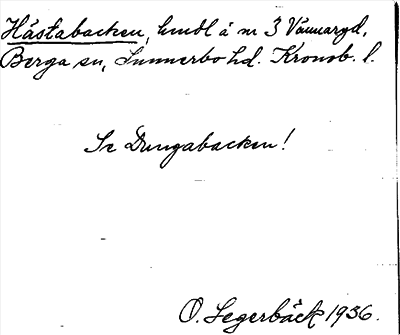 Håstabacken, hmdl å nr 3 Vännaryd,
Berga sn, Sunnerbo hd. Kronob. l.
Se Dungabacken!
O. Segerbäck 1936.